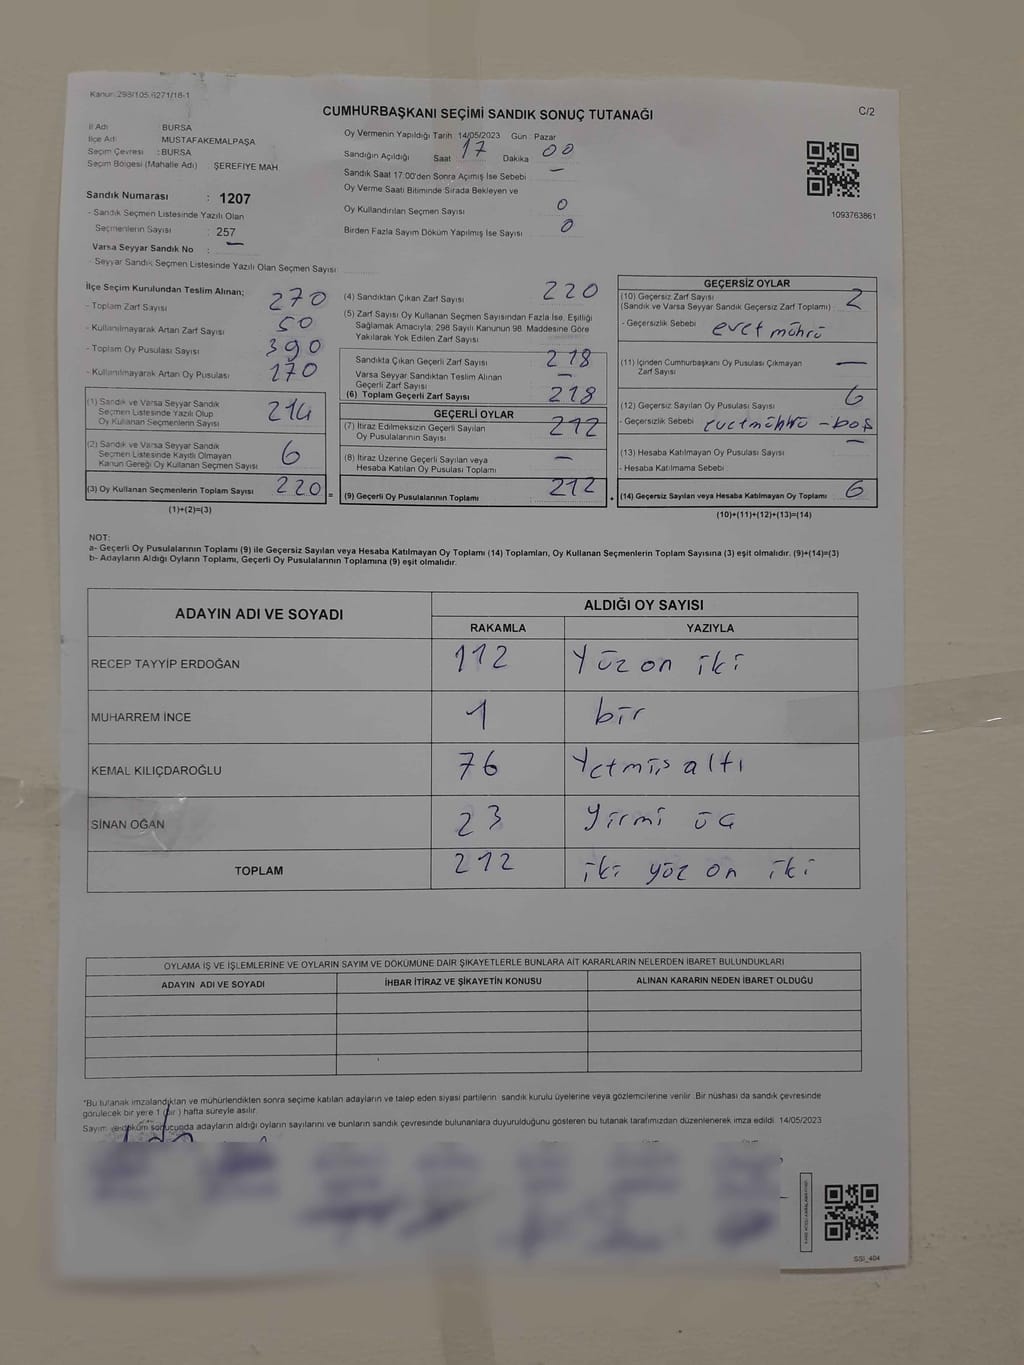 Kanun: 298/105,6271/18-1
CUMHURBAŞKANI SEÇİMİ SANDIK SONUÇ TUTANAĞI
C/2
İl Adı : BURSA
İlçe Adı : MUSTAFAKEMALPAŞA
Seçim Çevresi : BURSA
Seçim Bölgesi (Mahalle Adı) : ŞEREFİYE MAH
Sandık Numarası : 1207
- Sandık Seçmen Listesinde Yazılı Olan
Seçmenlerin Sayısı : 257
Varsa Seyyar Sandık No : —
- Seyyar Sandık Seçmen Listesinde Yazılı Olan Seçmen Sayısı
Oy Vermenin Yapıldığı Tarih 14/05/2023 Gün : Pazar
Sandığın Açıldığı Saat 17 Dakika 00
Sandık Saat 17:00'den Sonra Açılmış İse Sebebi —
Oy Verme Saati Bitiminde Sırada Bekleyen ve
Oy Kullandırılan Seçmen Sayısı 0
Birden Fazla Sayım Döküm Yapılmış İse Sayısı 0
1093763861
İlçe Seçim Kurulundan Teslim Alınan;
- Toplam Zarf Sayısı 270
- Kullanılmayarak Artan Zarf Sayısı 50
- Toplam Oy Pusulası Sayısı 390
- Kullanılmayarak Artan Oy Pusulası 170
(1) Sandık ve Varsa Seyyar Sandık
Seçmen Listesinde Yazılı Olup
Oy Kullanan Seçmenlerin Sayısı 214
(2) Sandık ve Varsa Seyyar Sandık
Seçmen Listesinde Kayıtlı Olmayan
Kanun Gereği Oy Kullanan Seçmen Sayısı 6
(3) Oy Kullanan Seçmenlerin Toplam Sayısı 220 =
(1)+(2)=(3)
(4) Sandıktan Çıkan Zarf Sayısı 220
(5) Zarf Sayısı Oy Kullanan Seçmen Sayısından Fazla İse, Eşitliği
Sağlamak Amacıyla; 298 Sayılı Kanunun 98. Maddesine Göre
Yakılarak Yok Edilen Zarf Sayısı
Sandıkta Çıkan Geçerli Zarf Sayısı 218
Varsa Seyyar Sandıktan Teslim Alınan
Geçerli Zarf Sayısı —
(6) Toplam Geçerli Zarf Sayısı 218
GEÇERLİ OYLAR
(7) İtiraz Edilmeksizin Geçerli Sayılan
Oy Pusulalarının Sayısı 212
(8) İtiraz Üzerine Geçerli Sayılan veya
Hesaba Katılan Oy Pusulası Toplamı —
(9) Geçerli Oy Pusulalarının Toplamı 212 +
GEÇERSİZ OYLAR
(10) Geçersiz Zarf Sayısı
(Sandık ve Varsa Seyyar Sandık Geçersiz Zarf Toplamı) : 2
- Geçersizlik Sebebi evet mührü
(11) İçinden Cumhurbaşkanı Oy Pusulası Çıkmayan
Zarf Sayısı —
(12) Geçersiz Sayılan Oy Pusulası Sayısı 6
- Geçersizlik Sebebi evetmührü - boş
(13) Hesaba Katılmayan Oy Pusulası Sayısı —
- Hesaba Katılmama Sebebi
(14) Geçersiz Sayılan veya Hesaba Katılmayan Oy Toplamı 6
(10)+(11)+(12)+(13)=(14)
NOT:
a- Geçerli Oy Pusulalarının Toplamı (9) ile Geçersiz Sayılan veya Hesaba Katılmayan Oy Toplamı (14) Toplamları, Oy Kullanan Seçmenlerin Toplam Sayısına (3) eşit olmalıdır. (9)+(14)=(3)
b- Adayların Aldığı Oyların Toplamı, Geçerli Oy Pusulalarının Toplamına (9) eşit olmalıdır.
ADAYIN ADI VE SOYADI ALDIĞI OY SAYISI
RAKAMLA YAZIYLA
RECEP TAYYİP ERDOĞAN 112 Yüz on iki
MUHARREM İNCE 1 bir
KEMAL KILIÇDAROĞLU 76 Yetmiş altı
SİNAN OĞAN 23 Yirmi üç
TOPLAM 212 iki yüz on iki
OYLAMA İŞ VE İŞLEMLERİNE VE OYLARIN SAYIM VE DÖKÜMÜNE DAİR ŞİKAYETLERLE BUNLARA AİT KARARLARIN NELERDEN İBARET BULUNDUKLARI
ADAYIN ADI VE SOYADI İHBAR İTİRAZ VE ŞİKAYETİN KONUSU ALINAN KARARIN NEDEN İBARET OLDUĞU
*Bu tutanak imzalandıktan ve mühürlendikten sonra seçime katılan adayların ve talep eden siyasi partilerin sandık kurulu üyelerine veya gözlemcilerine verilir. Bir nüshası da sandık çevresinde
görülecek bir yere 1 (bir) hafta süreyle asılır.
Sayım ve döküm sonucunda adayların aldığı oyların sayılarını ve bunların sandık çevresinde bulunanlara duyurulduğunu gösteren bu tutanak tarafımızdan düzenlenerek imza edildi. 14/05/2023
SSI_404